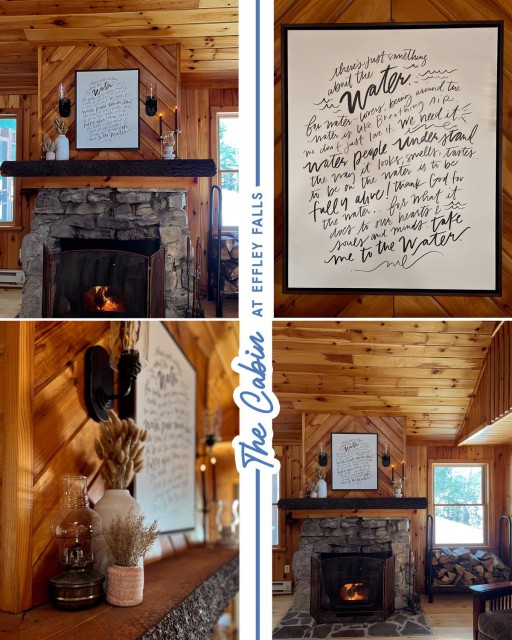 there's just something
about the
Water.
for water-lovers, being around the
water is like Breathing AIR
we don't just love it. we need it.
water people understand
the way it looks, smells, tastes
to be on the water is to be
fully alive! thank God for
the water... for what it
does to our hearts &
souls and minds take
me to the water.
The Cabin
AT EFFLEY FALLS